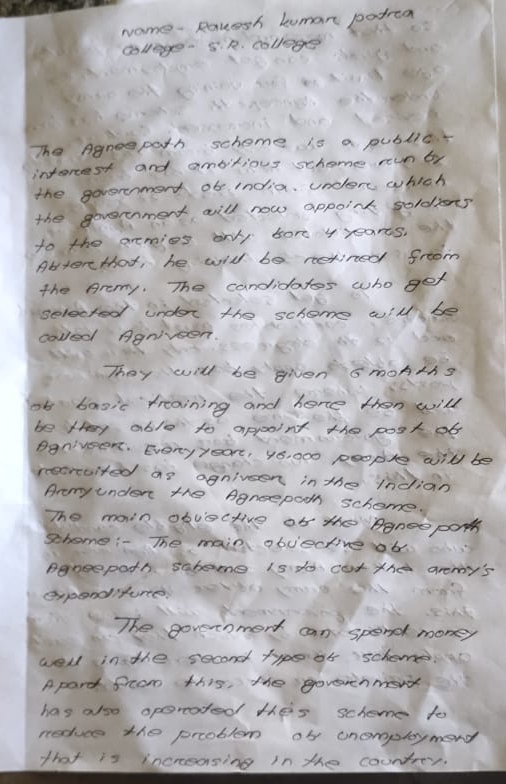 Name- Rakesh kumar patra
College- S.R. College
The Agneepath scheme is a public-
interest and ambitious scheme run by
the government of India. under which
the government, will now appoint soldiers
to the armies only for 4 years.
After that, he will be retired from
the Army. The candidates who get
selected under the scheme will be
called Agniveer.
They will be given 6 months
of basic training and here then will
be they able to appoint the post of
Agniveer. Every year, 46,000 people will be
recruited as agniveer in the Indian
Army under the Agneepath scheme.
The main objective of the Agneepath
Scheme:- The main objective of
Agneepath scheme is to cut the army's
expenditure.
The government can spend money
well in the second type of scheme.
Apart from this, the government
has also operated this scheme to
reduce the problem of unemployment
that is increasing in the country.